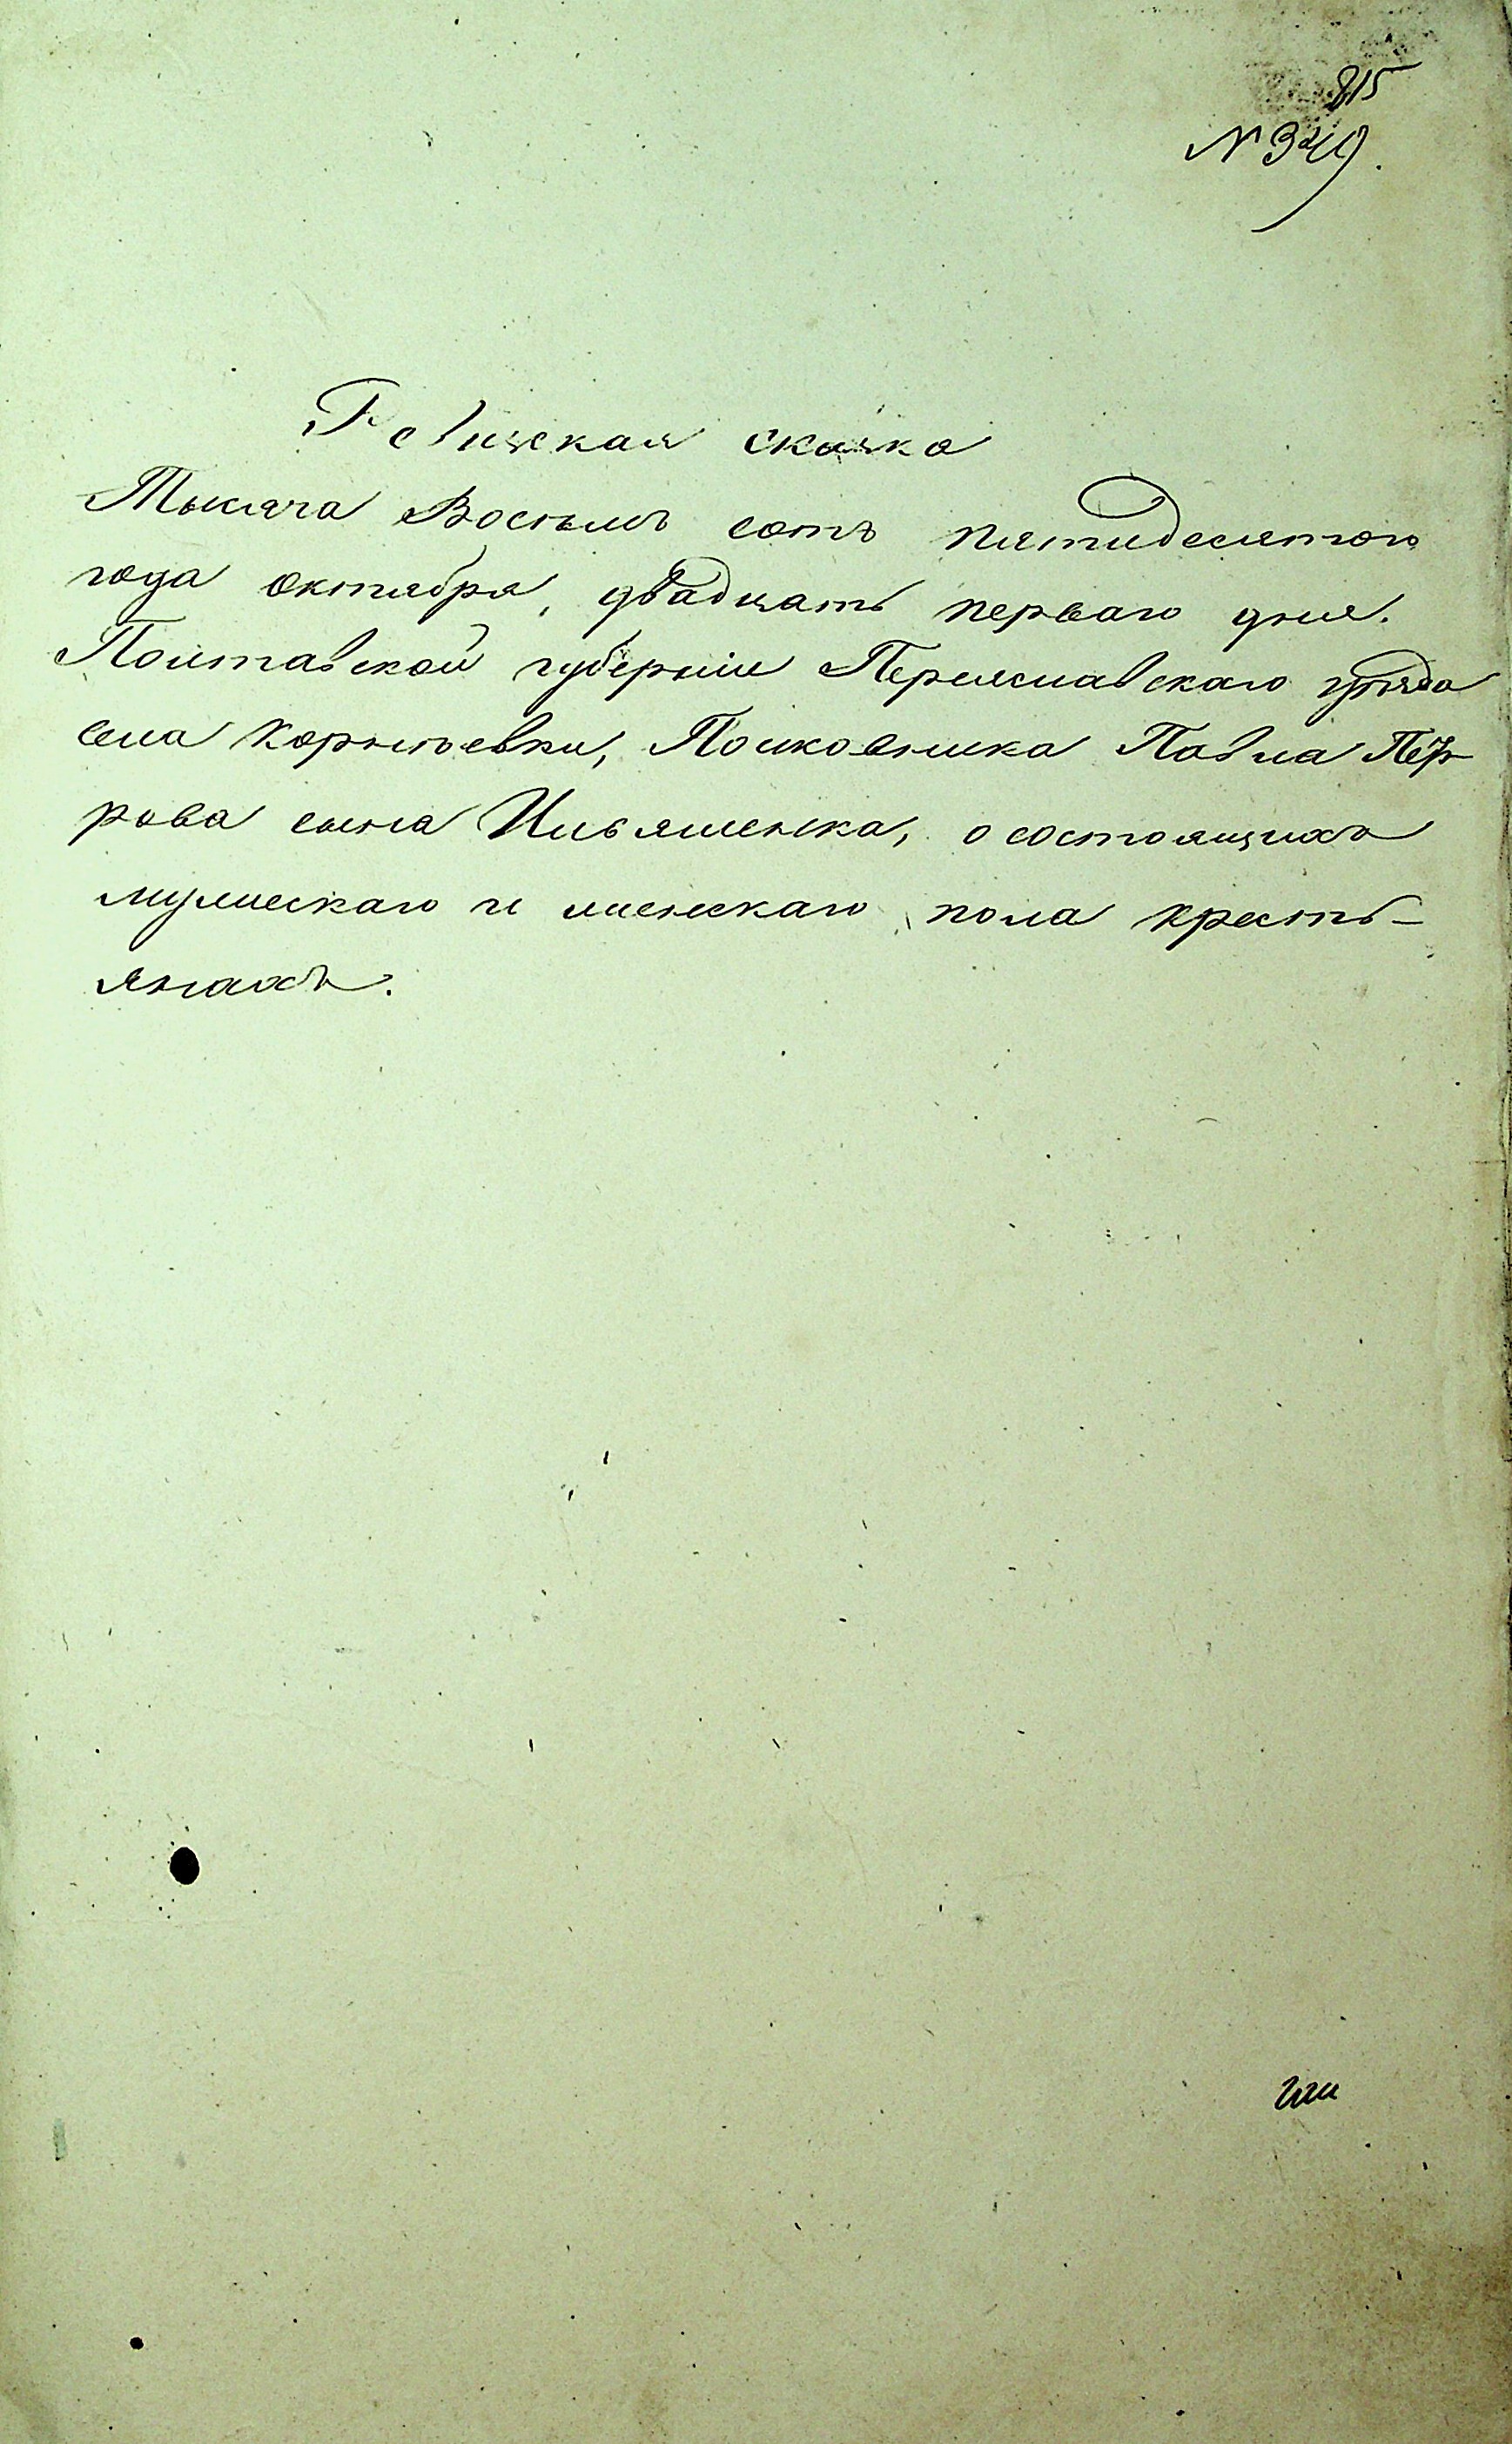 815
№ 349.
Ревизская сказка
Тысяча Восемь сотъ пятидесятого
года октября, двадцать перваго дня.
Полтавской губерніи Переяславскаго уѣзда
села Корнѣевки, Полковника Павла Пет
рова сына Ильяшенка, о состоящихъ
мужескаго и женскаго пола кресть-
янахъ.